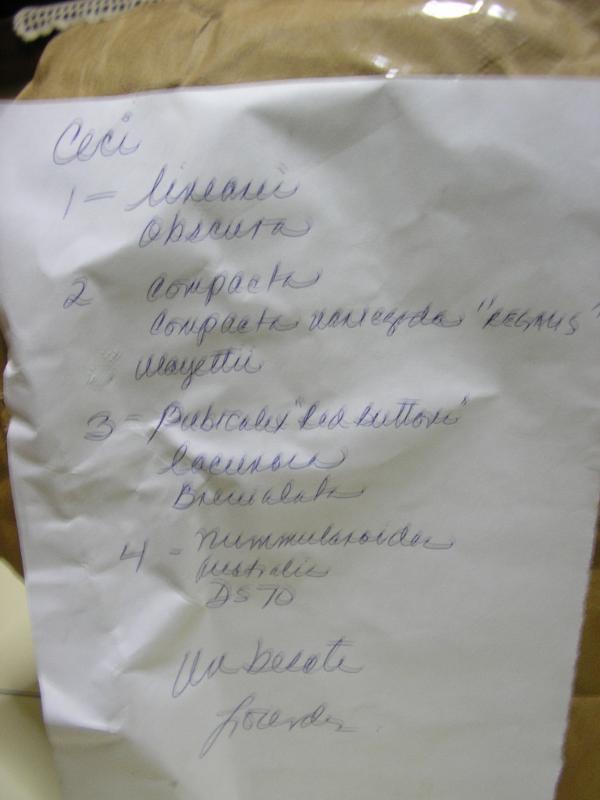 Ceci
1 = linearis
Obscura
2 compacta
Compacta variegada "REGALIS"
Wayettii
3 = Pubicalix "Red Buttom"
lacunosa
4 - nummularoides
australis
DS 70
Un besote
Lourdes